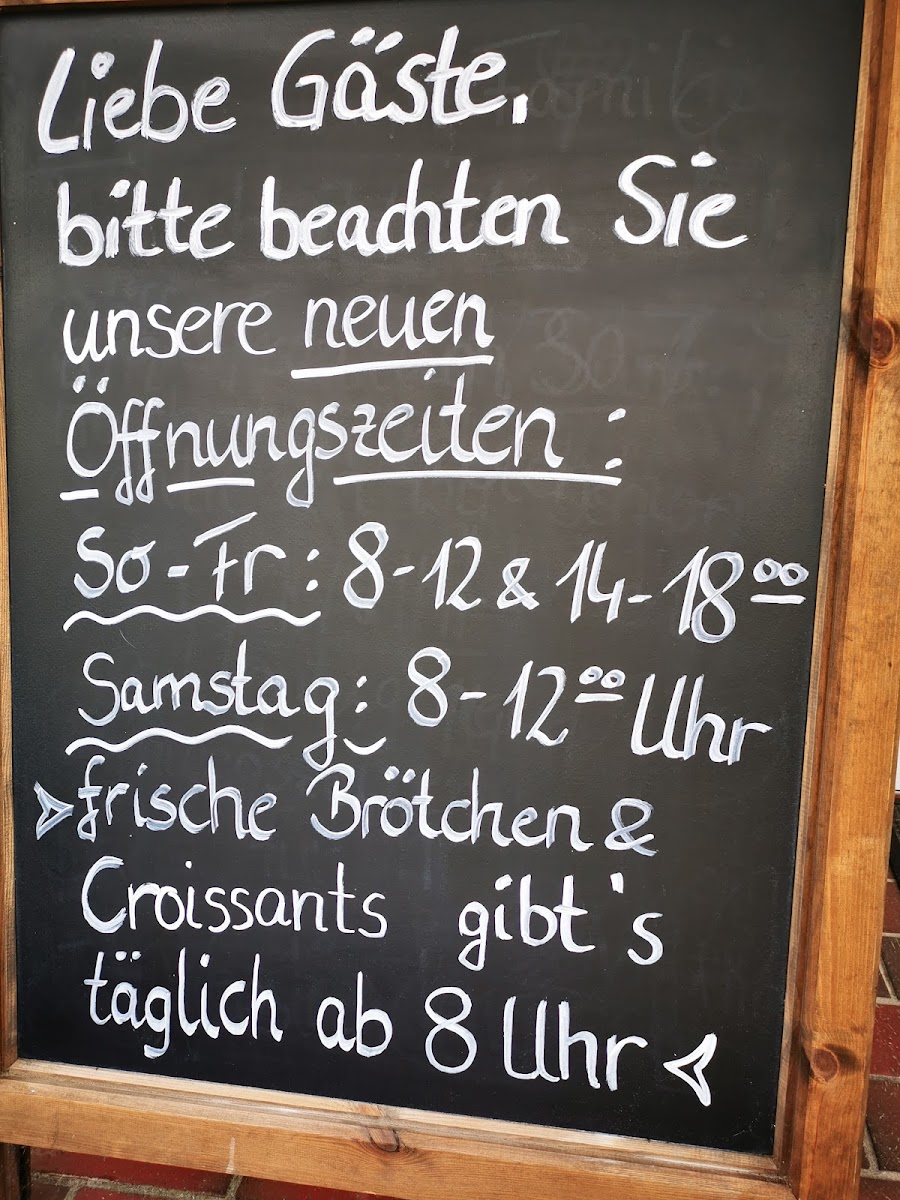 Liebe Gäste,
bitte beachten Sie
unsere neuen
Öffnungszeiten :
So - Fr : 8 - 12 & 14 - 18 00
Samstag : 8 - 12 00 Uhr
frische Brötchen &
Croissants gibt's
täglich ab 8 Uhr